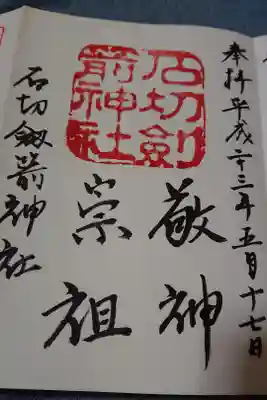 奉拝平成二十三年五月十七日
石切劔
箭神社
敬神
崇祖
石切劔箭神社